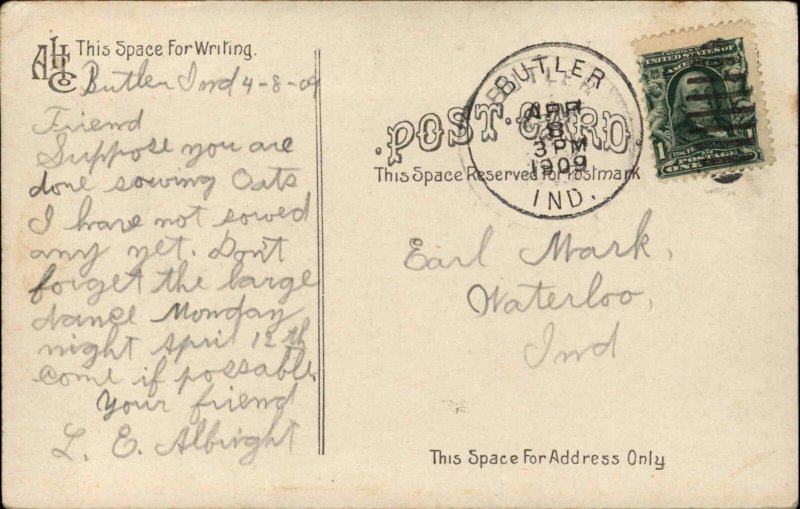 This Space For Writing.
Butler Ind 4-8-09
Friend
Suppose you are
done sowing Oats
I have not sowed
any yet. Don't
forget the large
dance Monday
night April 12th
come if possable.
Your friend
L. E. Albright
POST CARD
This Space Reserved for Postmark
BUTLER
APR
8
3 PM
1909
IND.
UNITED STATES OF
AMERICA
1
1
POSTAGE
Earl Mark,
Waterloo,
Ind
This Space For Address Only